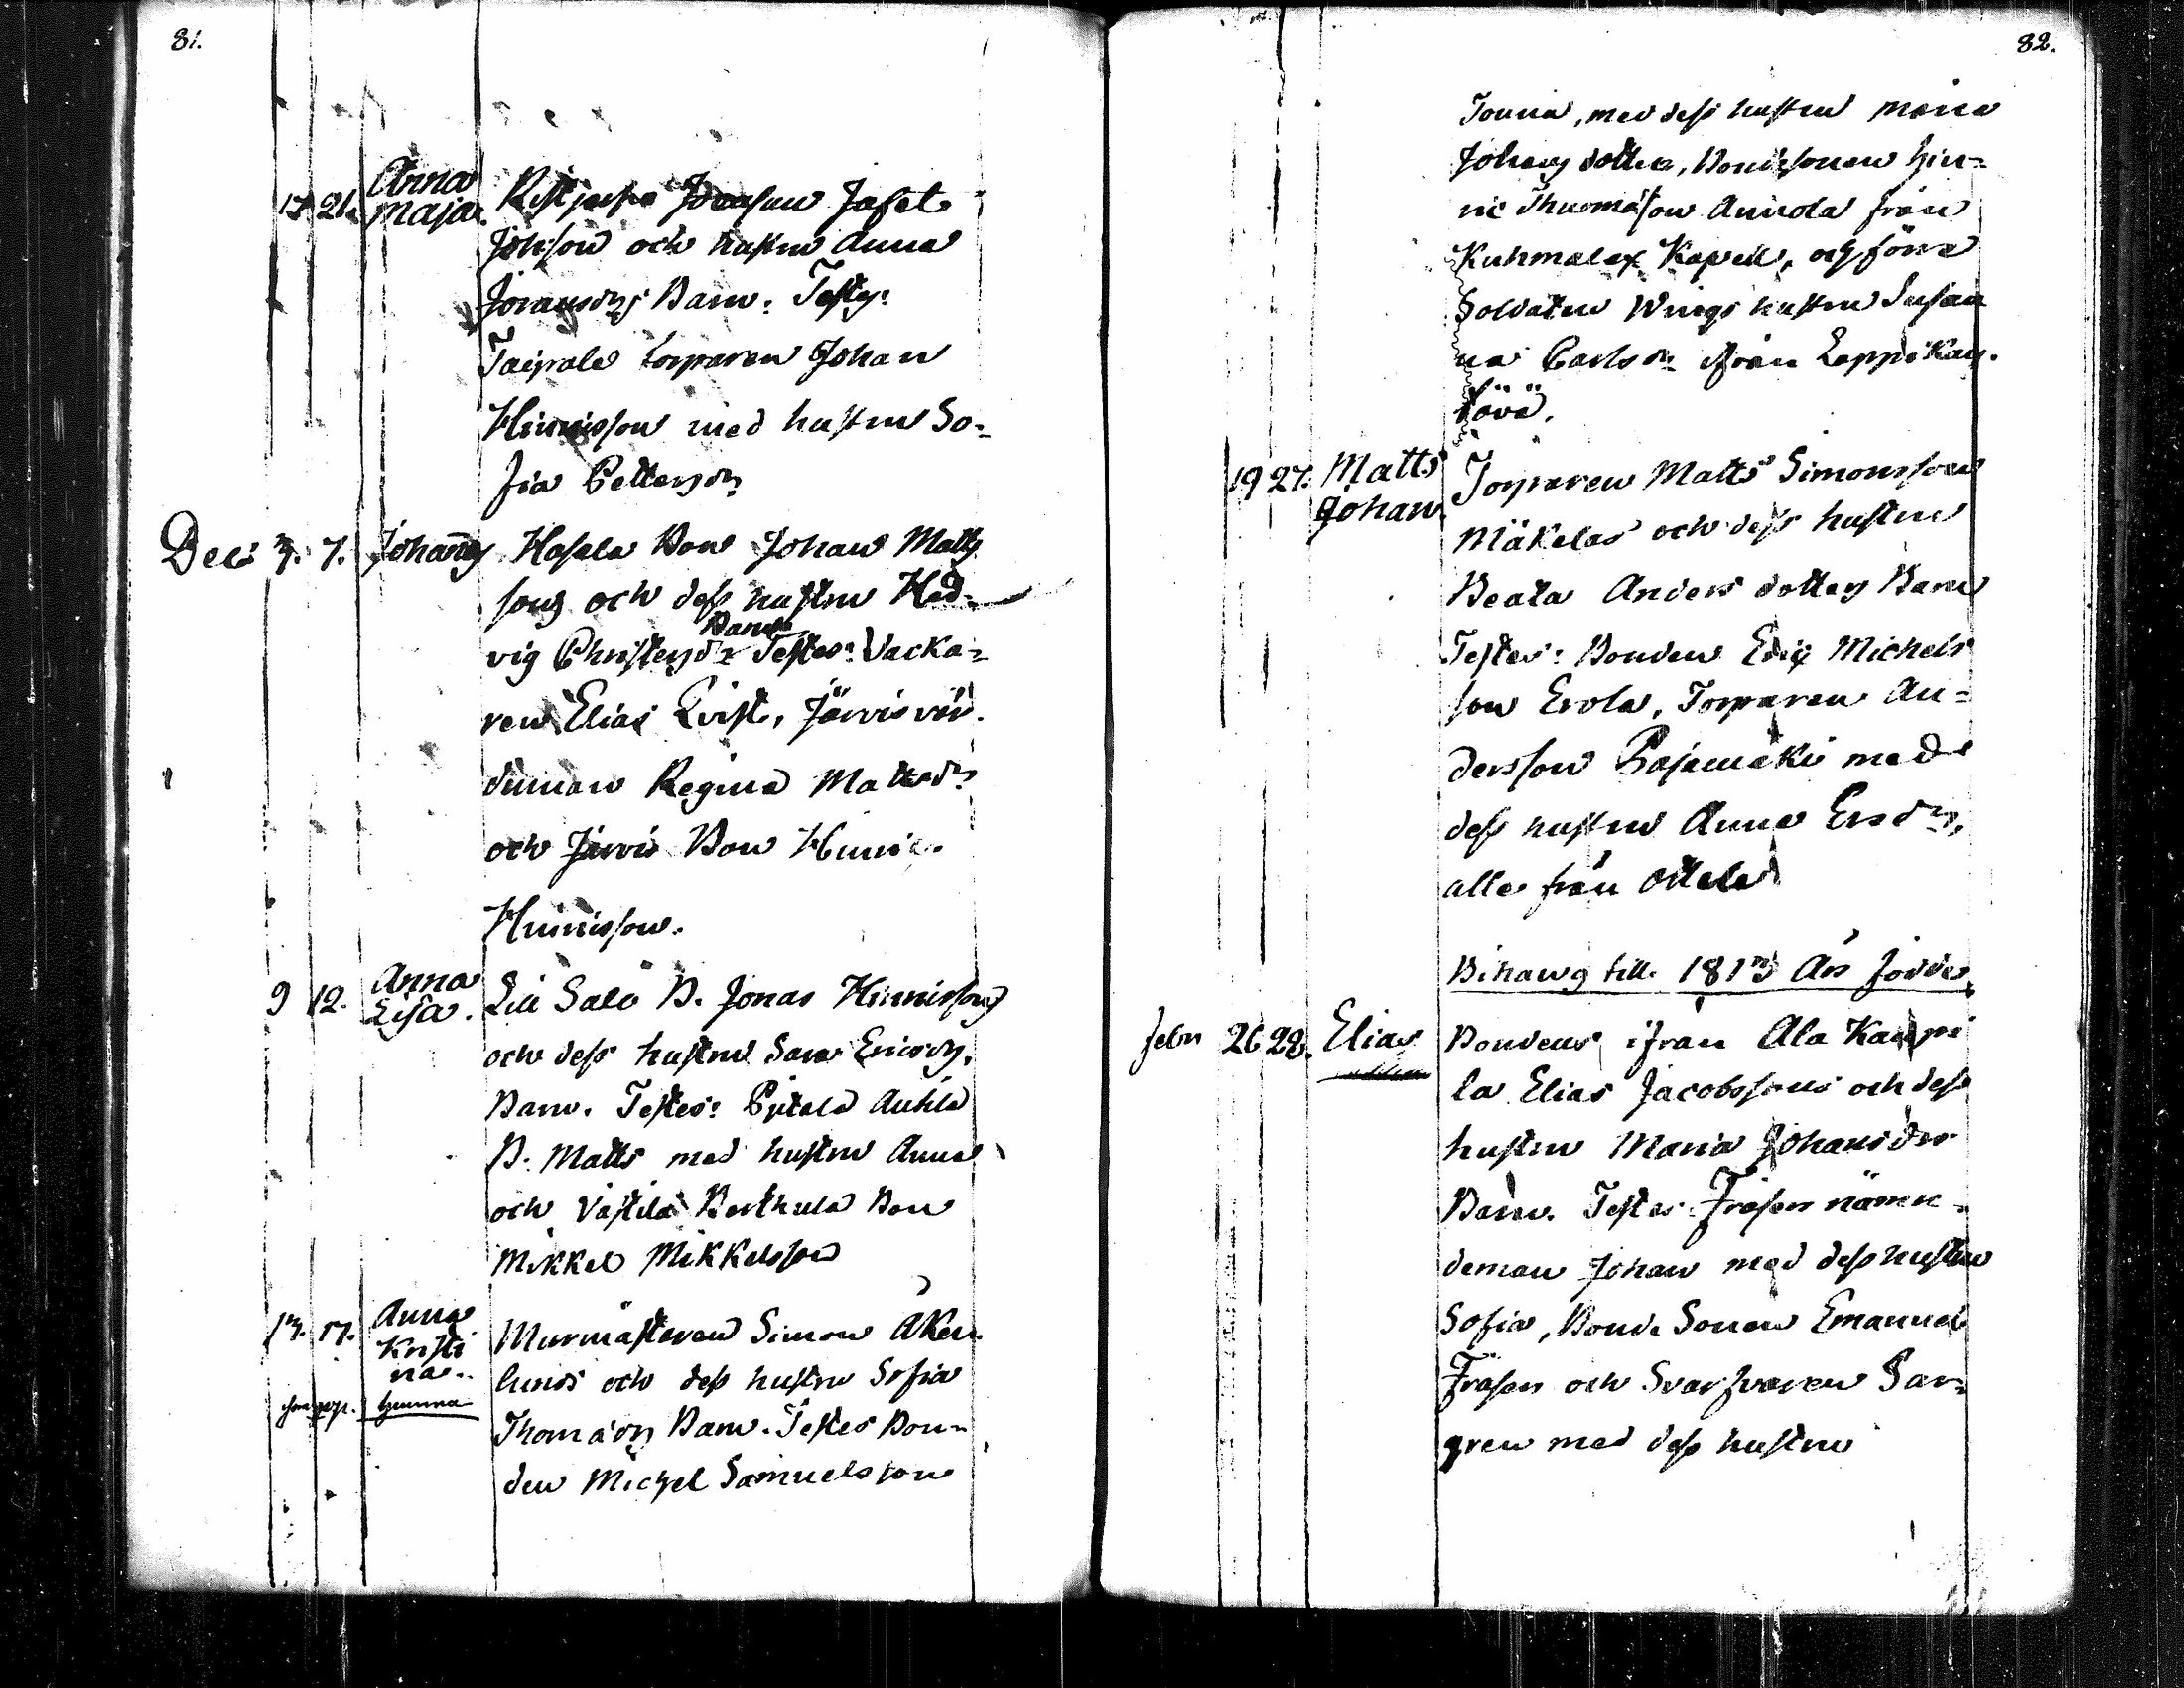 81.
Anna
maja.
13 21.
Johsson och hustru Anna
Joransdrs Barn. Testes:
Taipale torparen Johan
Hinrisson med hustru So-
fia Pettersdr
Dec: 3. 7. Johannes Hasala Bon Johan Matts
sons och dess hustru Hed-
Barn
vig Christersdr Testes: Vacka-
ren Elias Qvist, Järvis vär-
dinnan Regina Mattsdr
och Järvis Bon Hinric
Hinrisson.
Anna
Lisa.
9 12. Lill Salo B. Jonas Hinrissons
och dess hustru Sara Ericsdrs
Barn. Testes: Pjetala Anttila
B. Matts med hustru Anna
och Västilä Berthula Bon
Mikkel Mikkelsson
Anna
Kristi
na.
13. 17. Murmästaren Simon Åker-
lunds och dess hustru Sofia
hemma
Thomasdrs Barn. Testes Bon-
den Michel Samuelsson
82.
Jouna, med dess hustru Maria
Johans dotter, Bondsonen Hin-
ric Thuomasson Annola från
Kuhmalax Kapell, och förra
Soldaten Wings hustru Susan
na Carlsdr ifrån Leppäkas-
19 27. Matts
Johan.
Torparen Matts Simonssons
Mäkelas och dess hustru
Beata Anders dotters Barn
Testes: Bonden Eric Michels
son Erola, Torparen An-
dersson Pajamäki med
dess hustru Anna Ersdr,
alle från Ottala
Bihang till 1813 Års födde
Febr 26 28. Elias
Bondens ifrån Ala Kauppi
la Elias Jacobssons och dess
hustru Maria Johansdrs
Barn. Testes: Frasen nämn-
deman Johan med dess hustru
Sofia, Bonde Sonen Emanuel
Frasen och Svarfvaren San-
gren med dess hustru